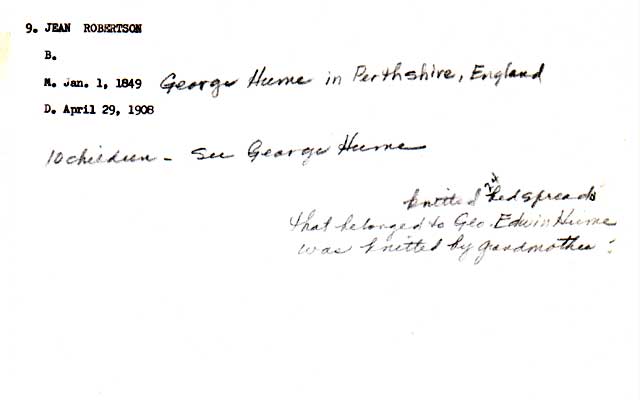 9. JEAN ROBERTSON
B.
M. Jan. 1, 1849 George Hume in Perthshire, England
D. April 29, 1908
10 children - See George Hume
knitted bedspreads
that belonged to Geo. Edwin Hume
was knitted by grandmother